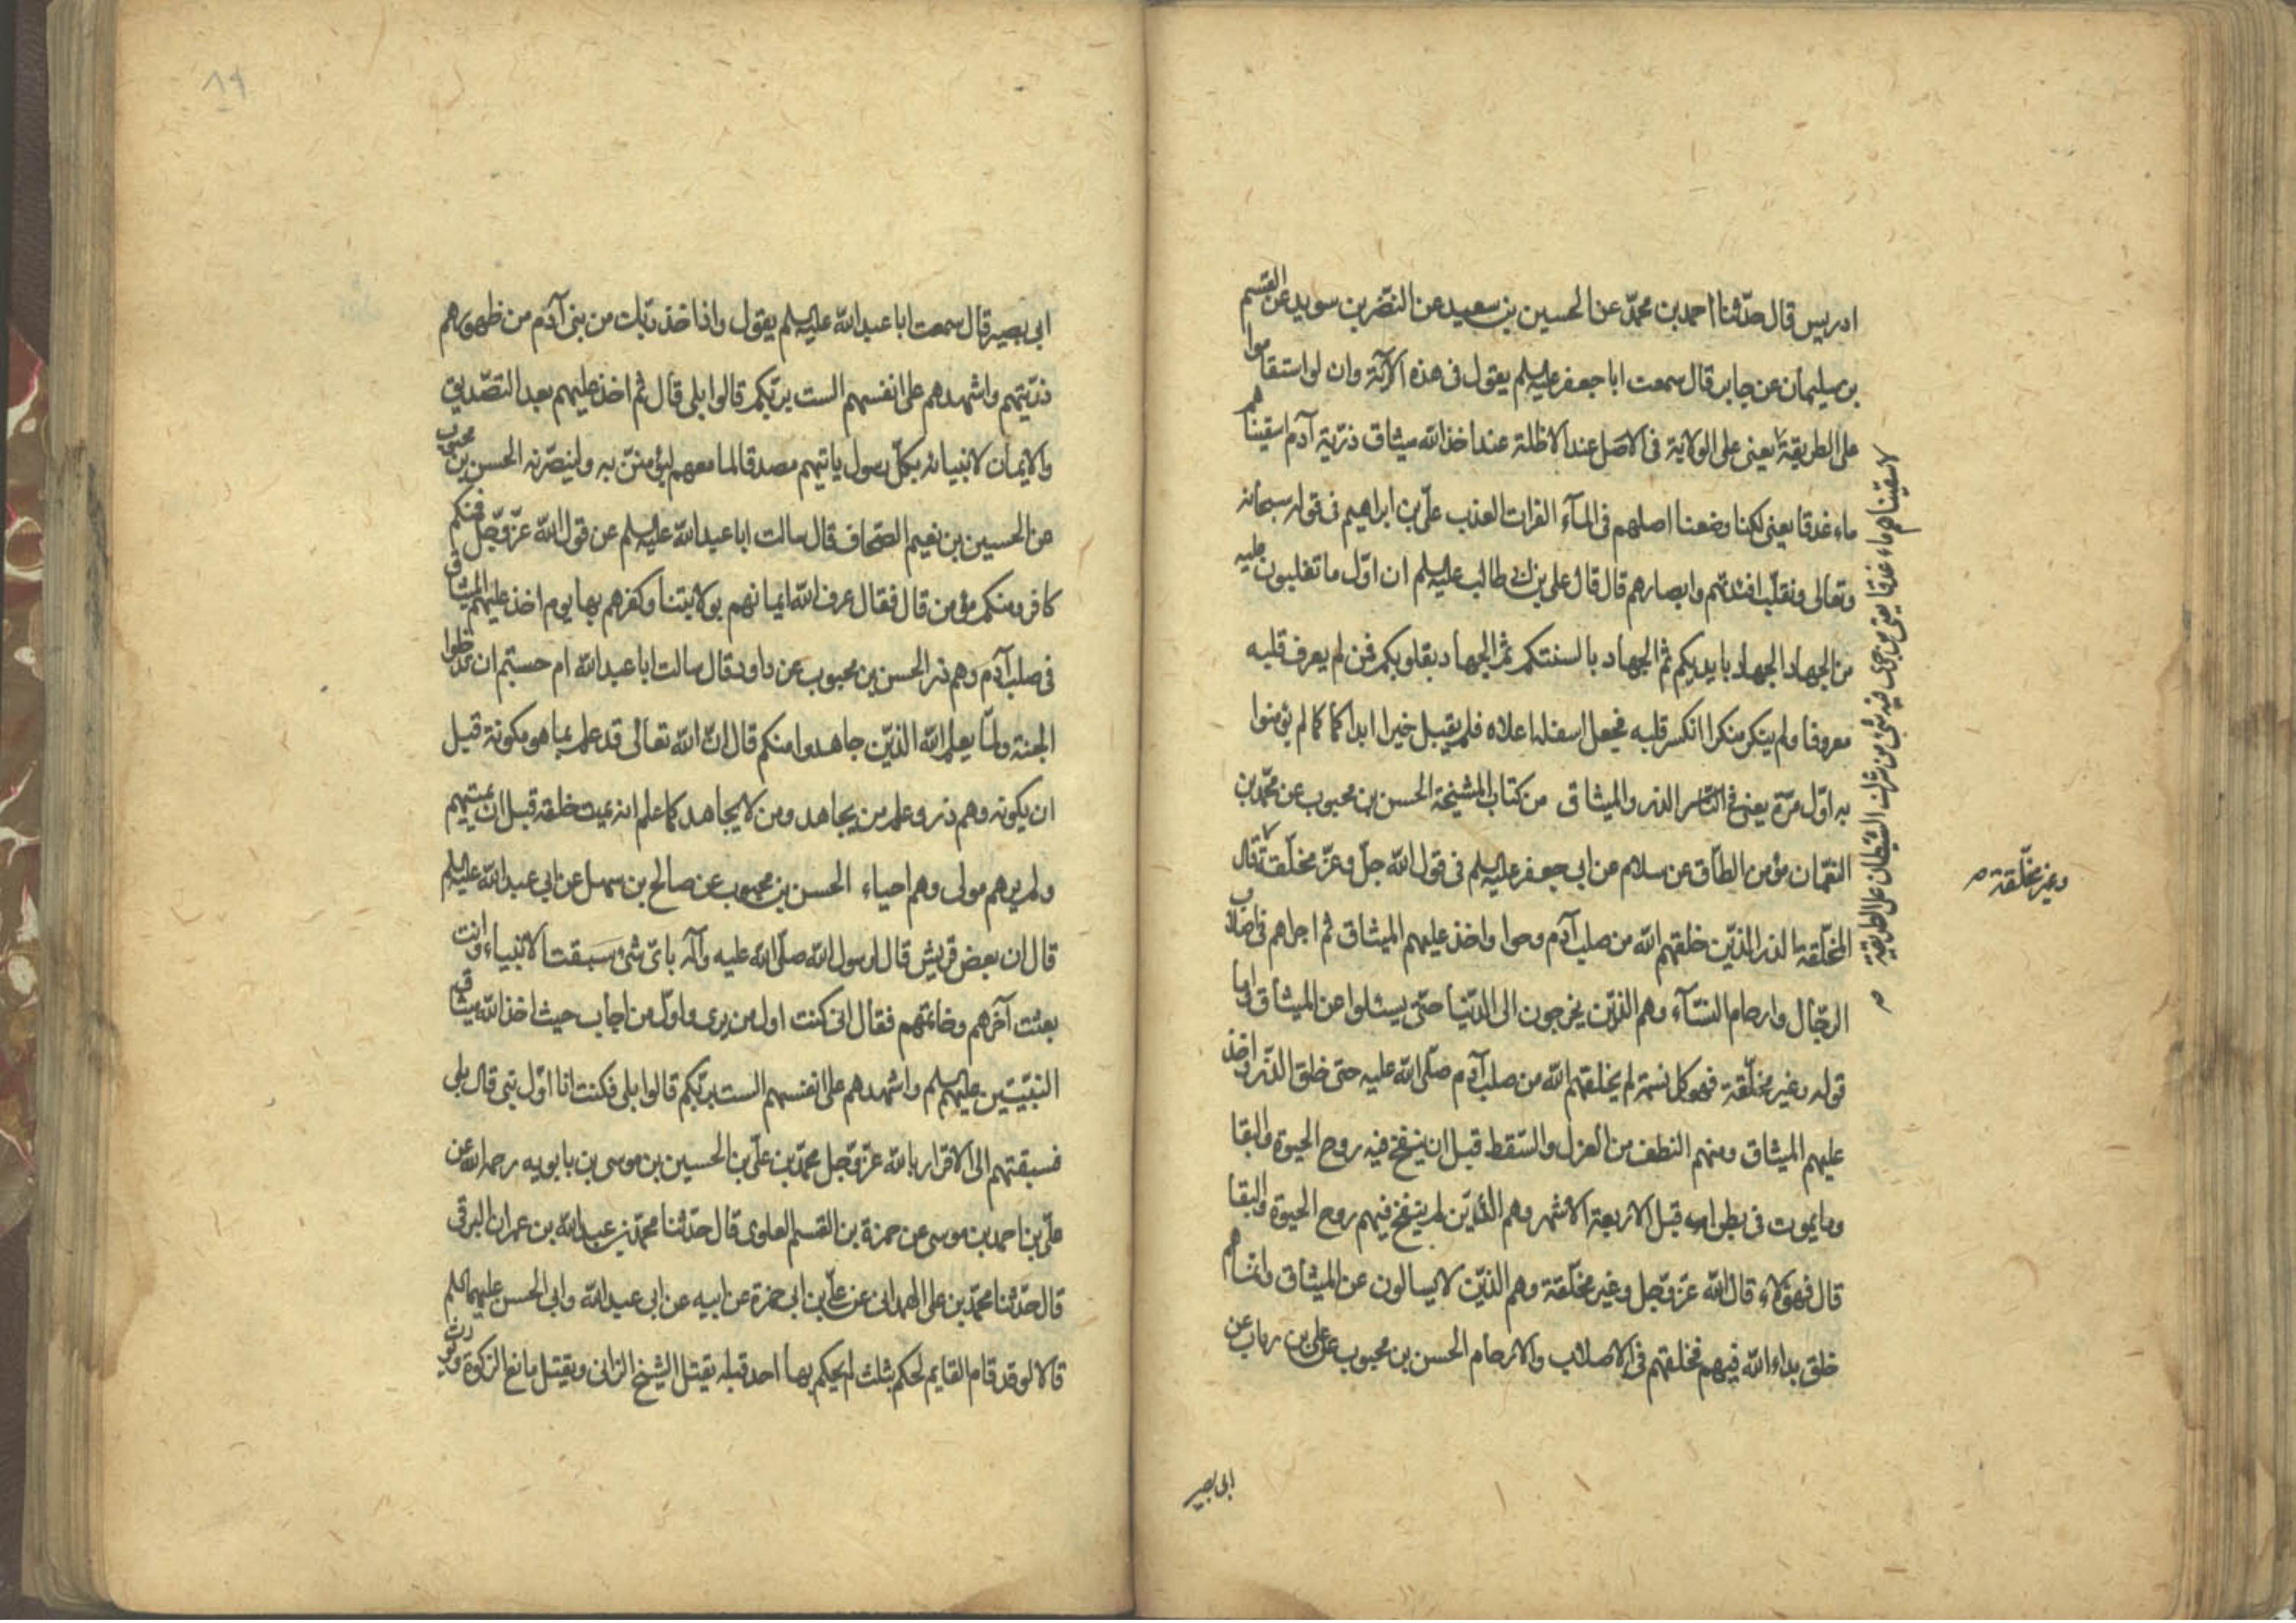 ادريس قال حدّثنا احمد بن محمّد عن الحسين بن سعيد عن النضر بن سويد عن القسم
بن سليمان عن جابر قال سمعت ابا جعفر عليه السلم يقول فى هذه الآية وان لو استقاموا
على الطريقة يعنى على الولاية فى الاصل عند الاظلة عند اخذ الله ميثاق ذرّية آدم اسقيناهم
ماء غدقا يعنى لكنا وضعنا اصلهم فى المآء الفرات العذب علىّ بن ابراهيم فى قوله سبحانه
وتعالى ونقلّب افئدتهم وابصارهم قال قال على بن ابى طالب عليه السلم ان اوّل ما تقلبون عليه
من الجهاد الجهاد بايديكم ثم الجهاد بالسنتكم ثم الجهاد بقلوبكم فمن لم يعرف قلبه
معروفا ولم ينكر منكرا انكسر قلبه فجعل اسفله اعلاه فلم يقبل خيرا ابدا كما كما لم يؤمنوا
به اوّل مرّة يعنى فى الذر والميثاق من كتاب المشيخة الحسن بن محبوب عن محمّد بن
النعمان مؤمن الطاق عن سلام عن ابى جعفر عليه السلم فى قول الله جلّ وعزّ مخلّقة قال
المخلّقة الذر الذيّن خلقهم الله من صلب آدم وحوا واخذ عليهم الميثاق ثم اجراهم فى اصلاب
الرّجال وارحام النسآء وهم الذيّن يخرجون الى الدّنيا حتى يسئلوا عن الميثاق وامّا
قوله وغير مخلّقة فهو كل نسمة لم يخلقهم الله من صلب آدم صلّى الله عليه حتى خلق الذّر واخذ
عليهم الميثاق ومنهم النطف من العزل والسّقط قبل ان ينفخ فيه روح الحيوة والبقا
وما يموت فى بطون امه قبل الاربعة الاشهر وهم الذيّن لم ينفخ فيهم روح الحيوة والبقا
قال فهؤلاء قال الله عزّ وجّل وغير مخلّقة وهم الذيّن لا يسالون عن الميثاق وانما هم
خلق بداء الله فيهم فخلقهم فى الاصلاب والارحام الحسن بن محبوب عن على بن رياب عن
لاسقيناهم ماء غدقا يعنى من شرك الشيطان على الطريقة
وغير مخلّقة
ابى بصير
ابى بصير قال سمعت ابا عبد الله عليه السلم يقول واذ اخذ ربّك من بنى آدم من ظهورهم
ذرّيتهم واشهدهم على انفسهم الست بربّكم قالوا بلى قال ثم اخذ عليهم بعد التصّديق
والايمان لانبيائه بكلّ رسول ياتيهم مصدقا لما معهم ليؤمننّ به ولينصرّنه الحسن بن محبوب
عن الحسين بن نعيم الصّحاف قال سالت ابا عبد الله عليه السلم عن قول الله عزّ وجّل فمنكم
كافر ومنكم مؤمن قال فقال عرف الله ايمانهم بولايتنا وكفرهم بها يوم اخذ عليهم الميثاق
فى صلب آدم وهم ذر الحسن بن محبوب عن داود قال سالت ابا عبد الله ام حسبتم ان تدخلوا
الجنة ولمّا يعلم الله الذيّن جاهدوا منكم قال انّ الله تعالى قد علم بما هو مكونه قبل
ان يكونه وهم ذر وعلم من يجاهد ومن لا يجاهد كما علم انه يميت خلقه قبل ان يميتهم
ولم يرهم موتى وهم احياء الحسن بن محبوب عن صالح بن سهل عن ابى عبد الله عليه السلم
قال ان بعض قريش قال لرسول الله صلّى الله عليه وآله باىّ شئ سبقت الانبياء وانت
بعثت آخرهم وخاتمهم فقال انى كنت اول من يرى واوّل من اجاب حيث اخذ الله ميثاق
النبيّين عليهم السلم واشهدهم على انفسهم الست بربّكم قالوا بلى فكنت انا اوّل نبى قال بلى
فسبقتهم الى الاقرار بالله عزّ وجّل محمّد بن علىّ بن الحسين بن موسى بن بابويه رحمه الله عن
علىّ بن احمد بن موسى عن حمزة بن القسم العلوى قال حدّثنا محمّد بن عبد الله بن عمران البرقى
قال حدّثنا محمّد بن على الهمدانى عن علىّ بن ابى حمزة عن ابيه عن ابى عبد الله وابى الحسن عليهما السلم
قالا لو قد قام القايم لحكم بثلث لم يحكم بها احد قبله يقتل الشيخ الزانى ويقتل مانع الزكوة ويورث